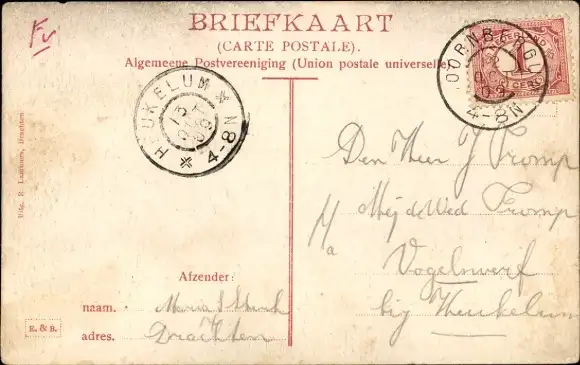 Fv
BRIEFKAART
(CARTE POSTALE).
Algemeene Postvereeniging (Union postale universelle)
HEUKELUM
13
OKT
09
4-8 N
DOORNBERGUM
4-8 N
1
CENT
Den Heer J Tromp
p/a Mej de Wed Tromp
Vogelswerf
bij Heukelum
Afzender:
naam. Maria S
adres. Drachten
E. & B.
Uitg. R. Lammers, Drachten